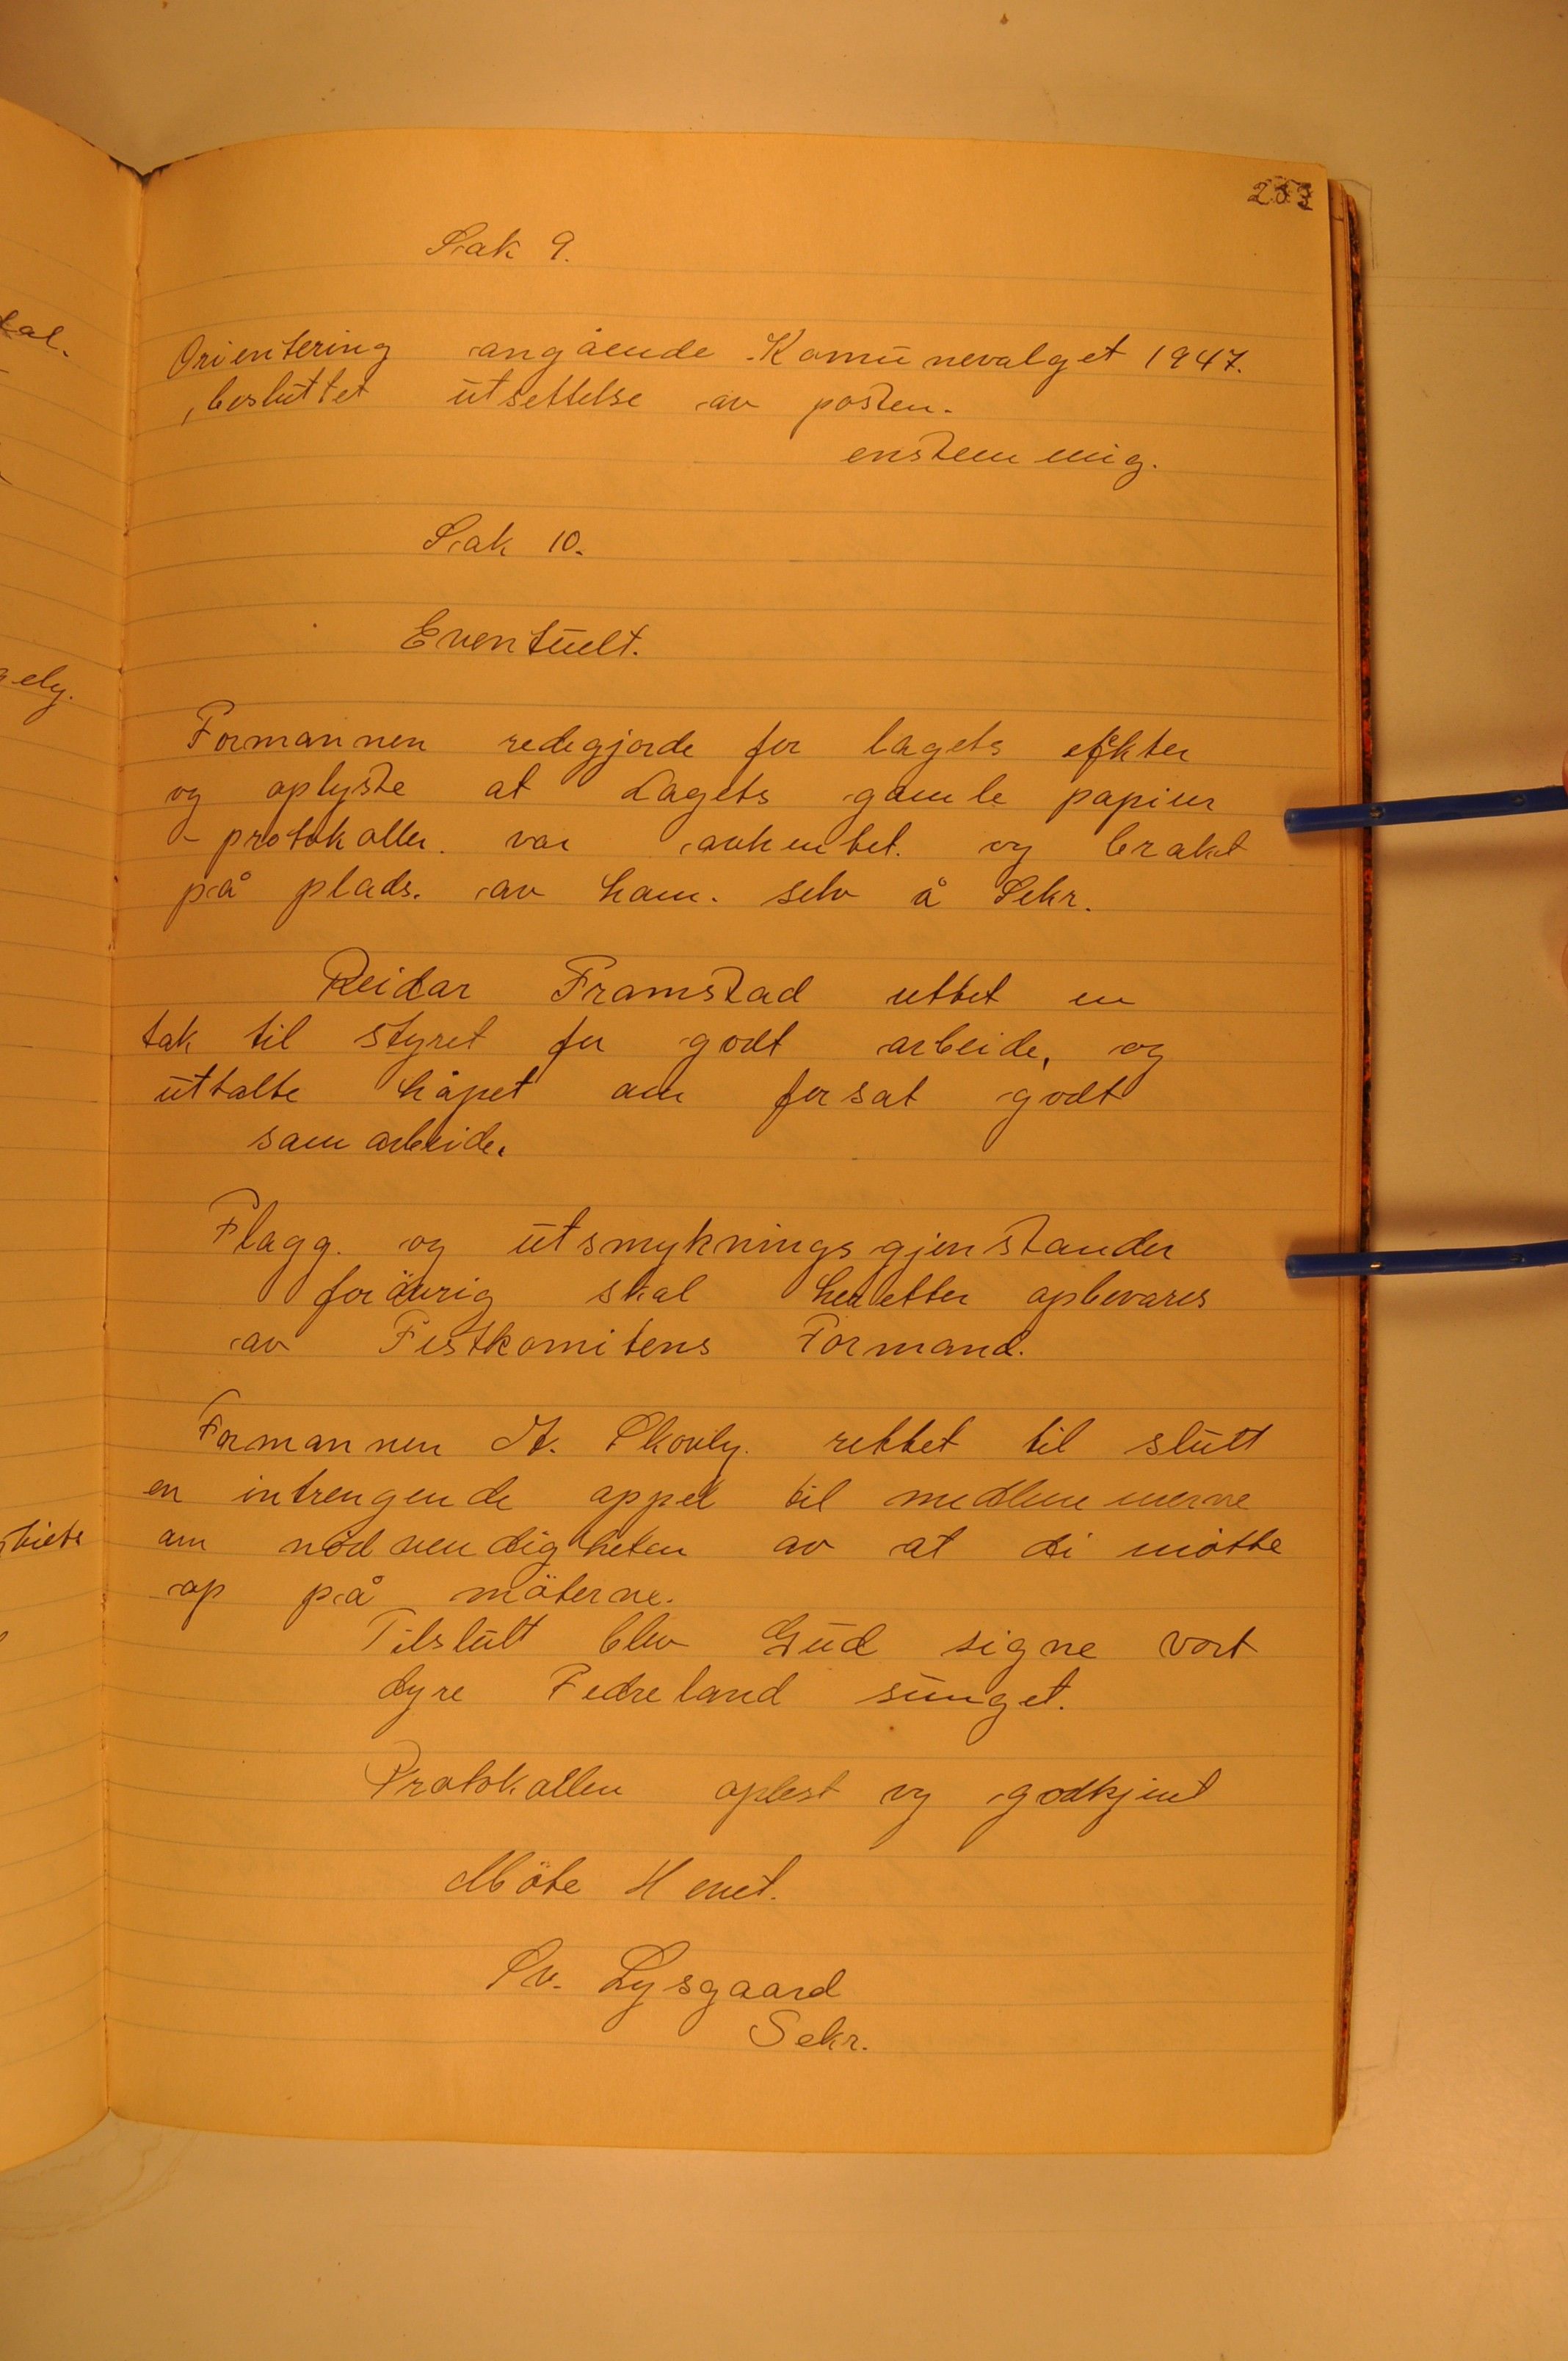 233
Sak 9.
Orientering angående Komunevalget 1947.
besluttet utsettelse av posten.
enstemmig.
Sak 10.
Eventuelt.
Formannen redegjorde for lagets efekter
og oplyste at Lagets gamle papirer
- protokoller. var avhentet. og brakt
på plads. av ham. selv å Sekr.
Reidar Framstad rettet en
tak til styret for godt arbeide, og
uttalte håpet om forsat godt
samarbeide.
Flagg. og utsmykningsgjenstander
forövrig skal heretter opbevares
av Festkomitens Formand.
Formannen H. Skovly. rettet til slutt
en intrengende appel til medlemmerne
om nödvendigheten av at di mötte
op på möterne.
Tilslutt blev Gud signe vort
dyre Fedreland sunget.
Protokollen oplest og godkjent
Möte Hevet.
Sv. Lysgaard
Sekr.
tal.
ely.